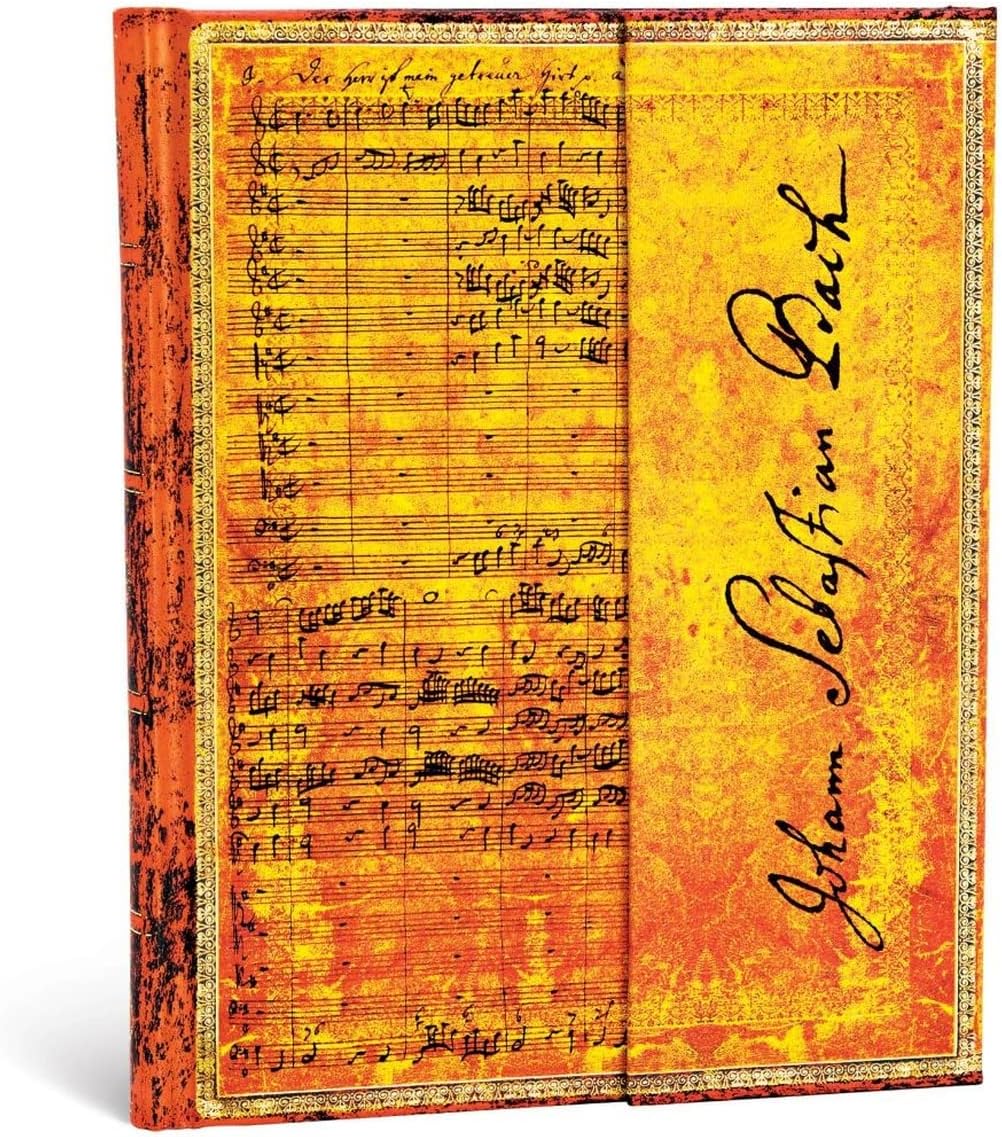 Der Herr ist mein getreuer Hirt p. a
Johann Sebastian Bach